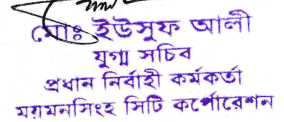 মোঃ ইউসুফ আলী
যুগ্ম সচিব
প্রধান নির্বাহী কর্মকর্তা
ময়মনসিংহ সিটি কর্পোরেশন